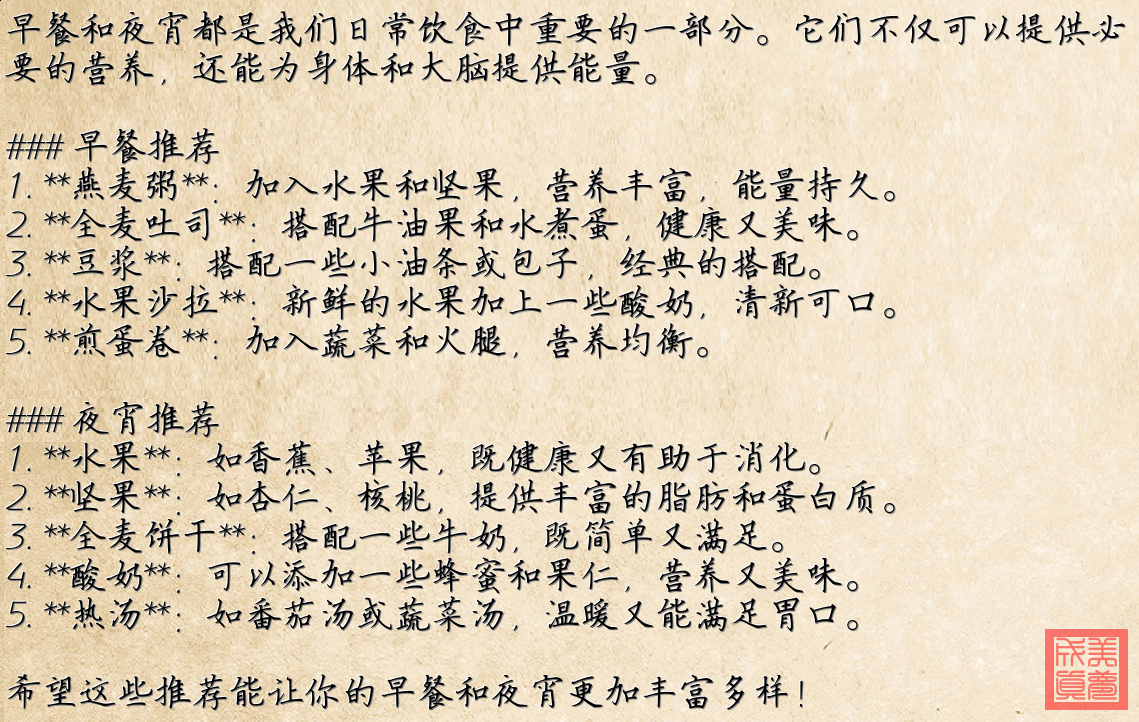 早餐和夜宵都是我们日常饮食中重要的一部分。它们不仅可以提供必
要的营养，还能为身体和大脑提供能量。
### 早餐推荐
1. **燕麦粥**：加入水果和坚果，营养丰富，能量持久。
2. **全麦吐司**：搭配牛油果和水煮蛋，健康又美味。
3. **豆浆**：搭配一些小油条或包子，经典的搭配。
4. **水果沙拉**：新鲜的水果加上一些酸奶，清新可口。
5. **煎蛋卷**：加入蔬菜和火腿，营养均衡。
### 夜宵推荐
1. **水果**：如香蕉、苹果，既健康又有助于消化。
2. **坚果**：如杏仁、核桃，提供丰富的脂肪和蛋白质。
3. **全麦饼干**：搭配一些牛奶，既简单又满足。
4. **酸奶**：可以添加一些蜂蜜和果仁，营养又美味。
5. **热汤**：如番茄汤或蔬菜汤，温暖又能满足胃口。
希望这些推荐能让你的早餐和夜宵更加丰富多样！